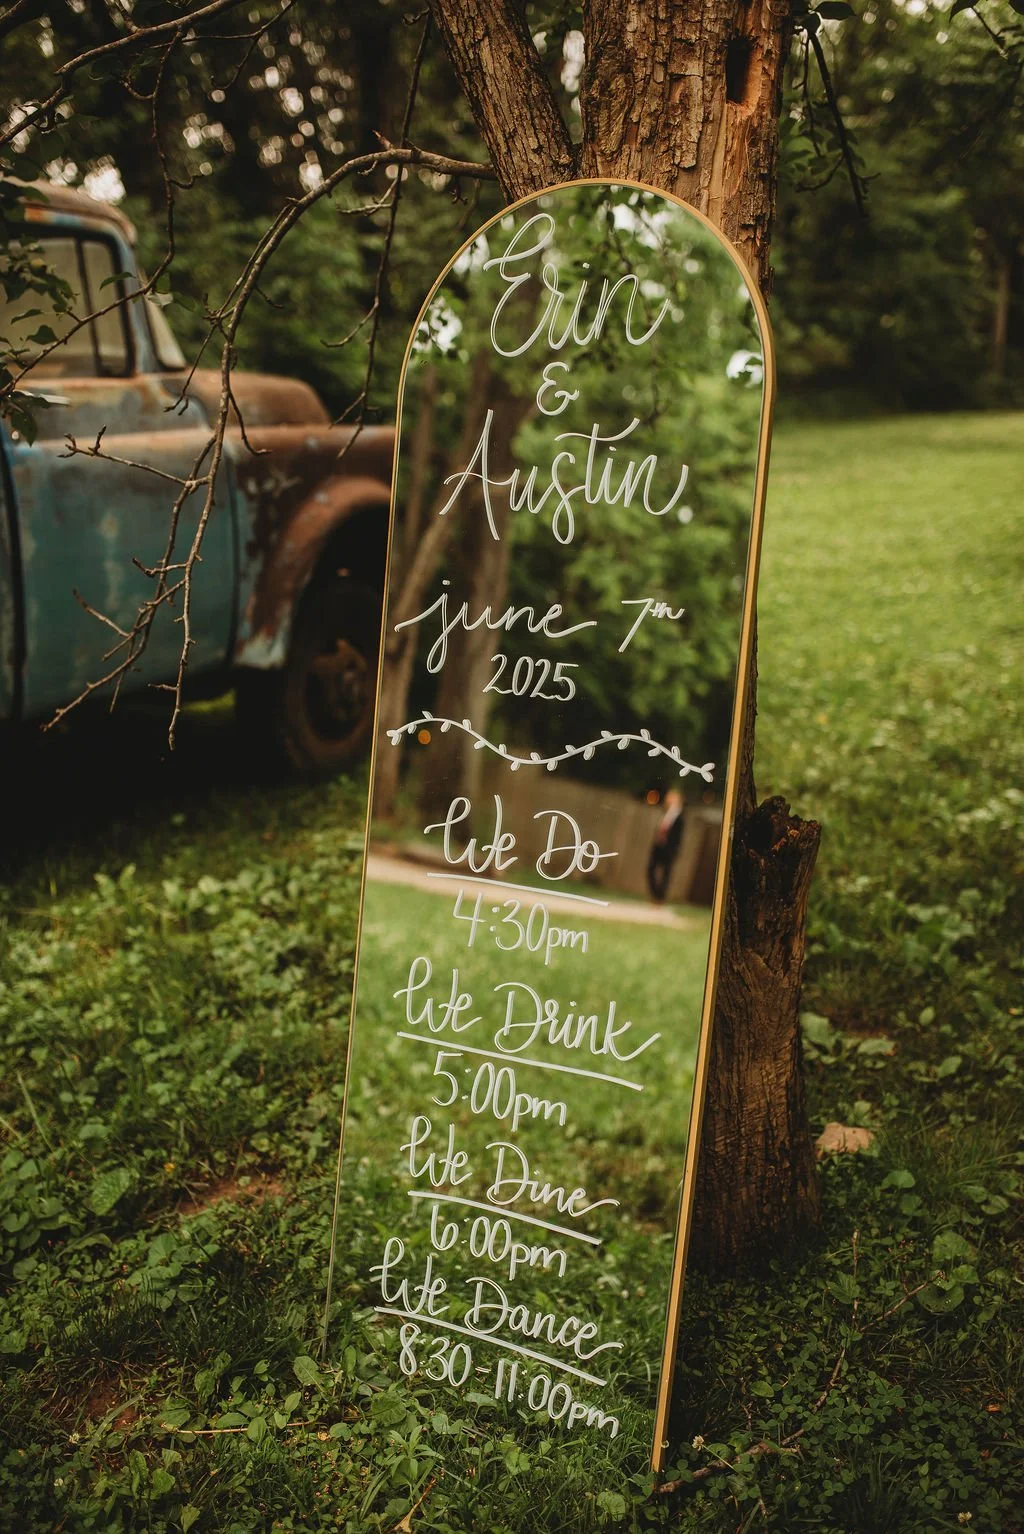 Erin
&
Austin
june 7th
2025
We Do
4:30pm
We Drink
5:00pm
We Dine
6:00pm
We Dance
8:30-11:00pm